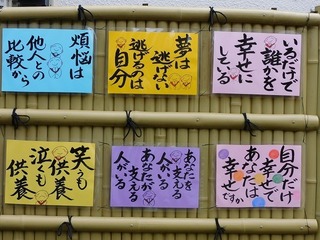 煩悩は
他人との
比較から
夢は
逃げない
逃げるのは
自分
いるだけで
誰かを
幸せに
している
笑うも
供養
泣くも
供養
あなたを
支える
人がいる
あなたが
支える
人がいる
自分だけ
幸せで
あなたは
幸せですか